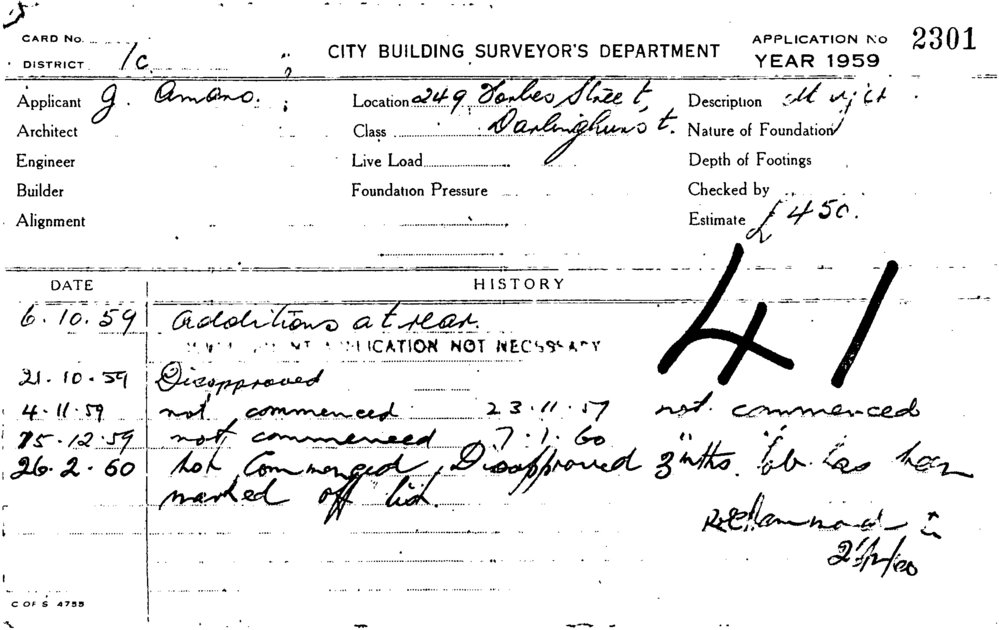 CARD No.
DISTRICT 1c
CITY BUILDING SURVEYOR'S DEPARTMENT
APPLICATION No 2301
YEAR 1959
Applicant G. Amaro.
Location 249 Forbes Street,
Description
Architect
Class Darlinghurst.
Nature of Foundation
Engineer
Live Load
Depth of Footings
Builder
Foundation Pressure
Checked by
Alignment
Estimate £450.
41
DATE HISTORY
6.10.59 Additions at rear.
APPLICATION NOT NECESSARY
21.10.59 Disapproved
4.11.59 not commenced 23.11.59 not commenced
15.12.59 not commenced 7.1.60 " "
26.2.60 Not Commenced, Disapproved 3 mths. Job has been
marked off list.
C OF S 4755